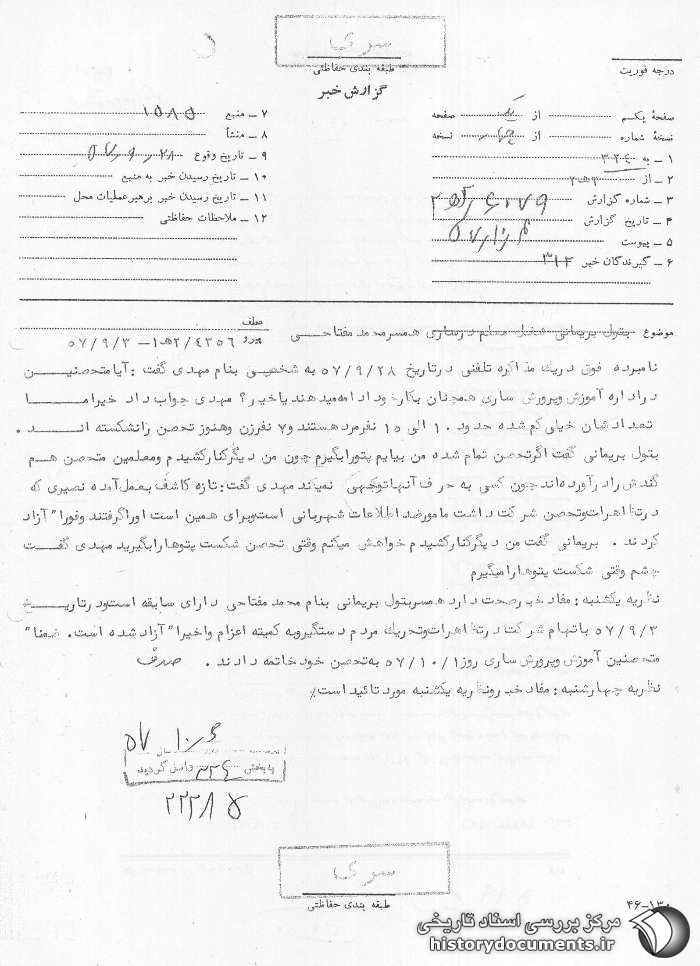 سری
طبقه بندی حفاظتی
گزارش خبر
درجه فوریت
صفحهٔ یکم از یک صفحه
نسخهٔ شماره از نسخه
۱ ـ به ۳۲۴
۲ ـ از
۳ ـ شماره گزارش
۴ ـ تاریخ گزارش
۵ ـ پیوست
۶ ـ گیرندگان خبر ۳۱۲
۷ ـ منبع ۱۵۸۵
۸ ـ منشأ
۹ ـ تاریخ وقوع ۵۷،۹،۲۸
۱۰ ـ تاریخ رسیدن خبر به منبع
۱۱ ـ تاریخ رسیدن خبر برهبر عملیات محل
۱۲ ـ ملاحظات حفاظتی
موضوع بتول بریمانی شغل معلم درساری همسر محمد مفتاحی
عطف
پیرو ۲/۴۳۵۶هـ۱ـ ۵۷/۹/۳
نامبرده فوق دریك مذاکره تلفنی درتاریخ ۵۷/۹/۲۸ به شخصی بنام مهدی گفت :آیا متحصنین
دراداره آموزش وپرورش ساری همچنان بکارخود ادامه میدهند یاخیر؟ مهدی جواب داد خیر اما
تعدادشان خیلی کم شده حدود ۱۰ الی ۱۵ نفر مرد هستند و۷ نفرزن وهنوز تحصن رانشکسته اند .
بتول بریمانی گفت اگر تحصن تمام شده من بیایم پتورابگیرم چون من دیگر کنار کشیدم ومعلمین متحصن هم
گندش رادرآورده اند چون کسی به حرف آنهاتوجهی نمیکند مهدی گفت: تازه کاشف بعمل آمده نصیری که
درتظاهرات وتحصن شرکت داشت مامور ضد اطلاعات شهربانی است وبرای همین است اوراگرفتند وفورا" آزاد
کردند . بریمانی گفت من دیگر کنار کشیدم خواهش میکنم وقتی تحصن شکست پتوهارابگیرید مهدی گفت
چشم وقتی شکست پتوهارامیگیرم
نظریه یکشنبه: مفاد خبرصحت دارد همسر بتول بریمانی بنام محمد مفتاحی دارای سابقه است ودرتاریخ
۵۷/۹/۳ باتهام شرکت درتظاهرات وتحریك مردم دستگیر وبه کمیته اعزام واخیرا" آزاد شده است. ضمنا"
متحصنین آموزش وپرورش ساری روز ۵۷/۱۰/۱ به تحصن خود خاتمه دادند .
نظریه چهارشنبه: مفاد خبر ونظریه یکشنبه مورد تائید است٪
سال
بخش ۳۲۴ واصل گردید
۲۲۲۸۵
سری
طبقه بندی حفاظتی
۴۶-۱۳۰
مرکز بررسی اسناد تاریخی
historydocuments.ir